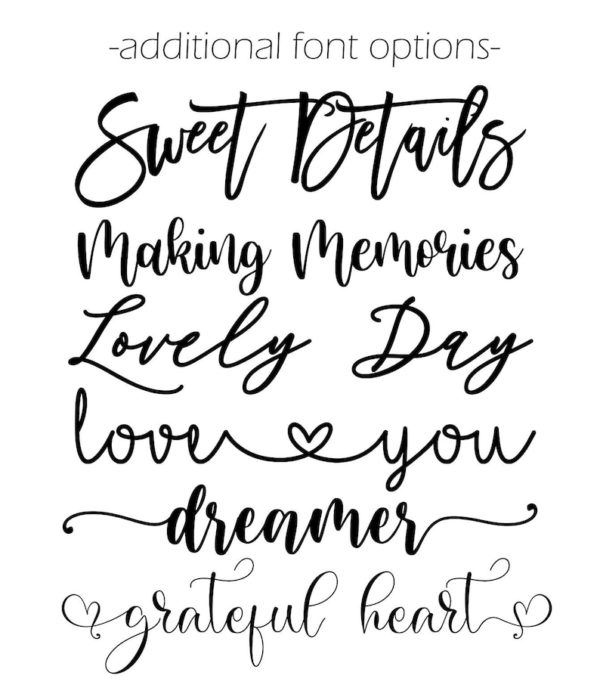 -additional font options-
Sweet Details
Making Memories
Lovely Day
love you
dreamer
grateful heart